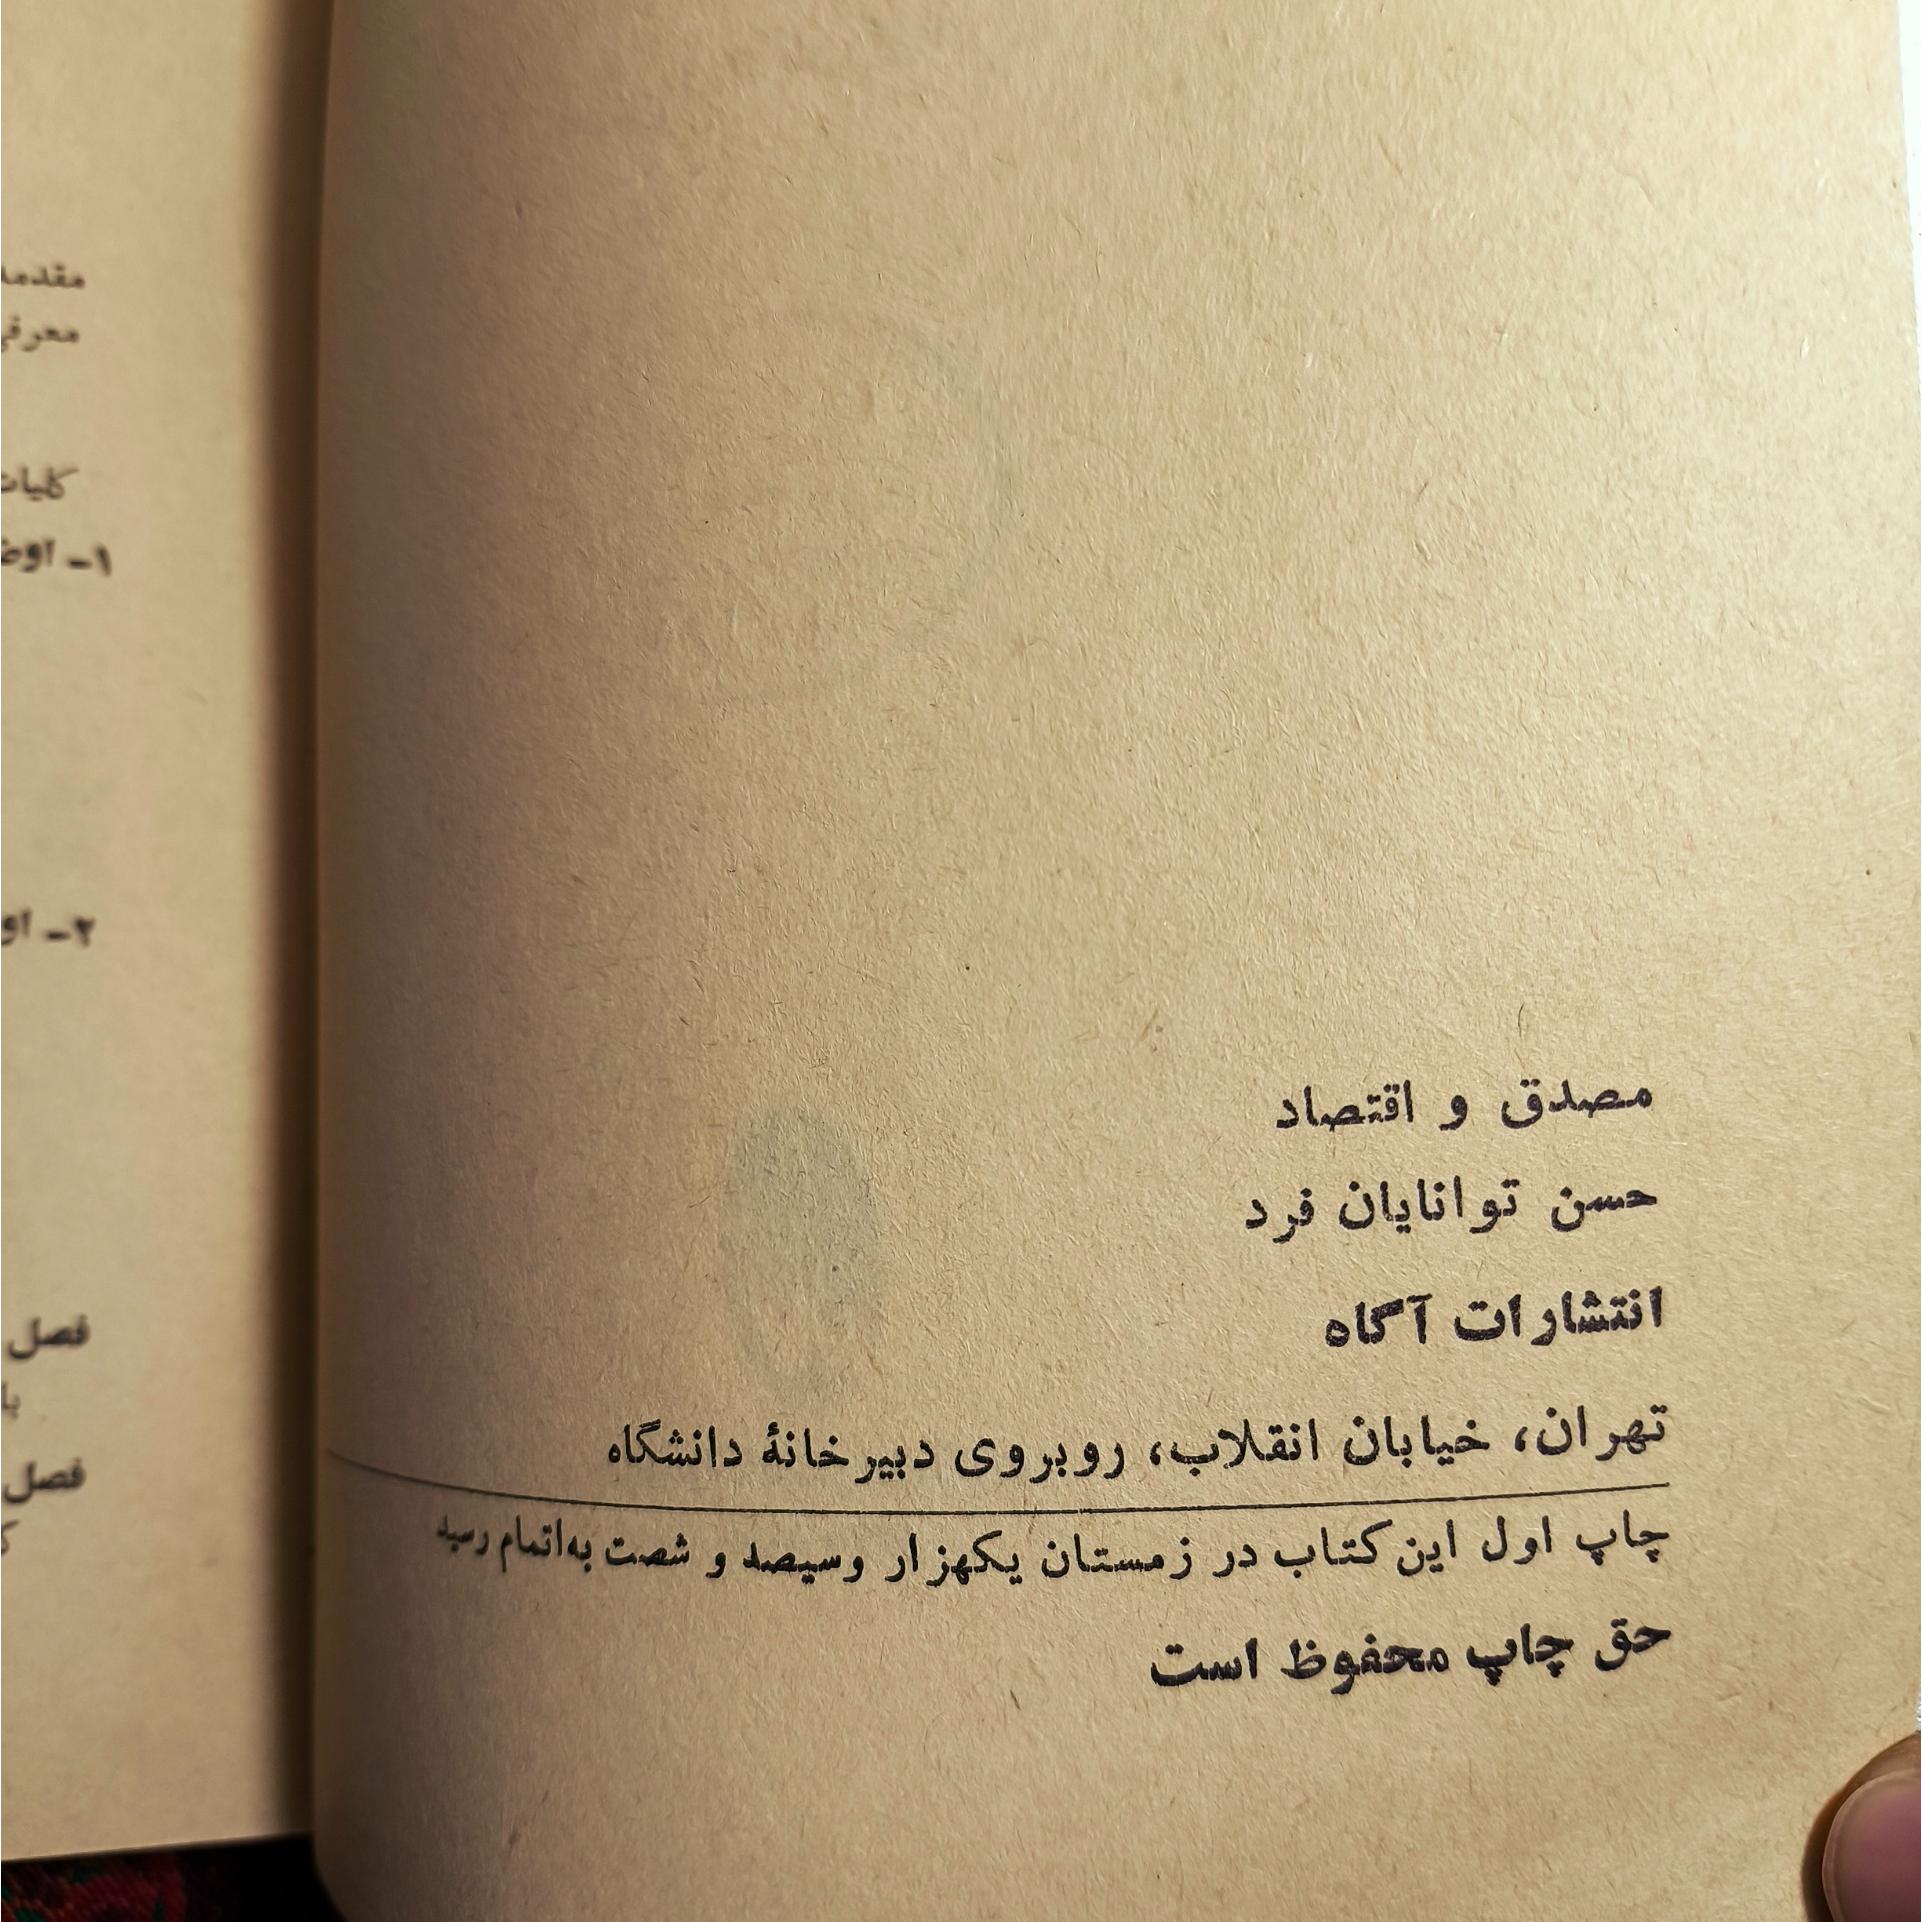 مصدق و اقتصاد
حسن توانایان فرد
انتشارات آگاه
تهران، خیابان انقلاب، روبروی دبیرخانهٔ دانشگاه
چاپ اول این کتاب در زمستان یکهزار وسیصد و شصت به‌اتمام رسید
حق چاپ محفوظ است
مقدمه
کلیات
۱-
۲-
فصل
فصل